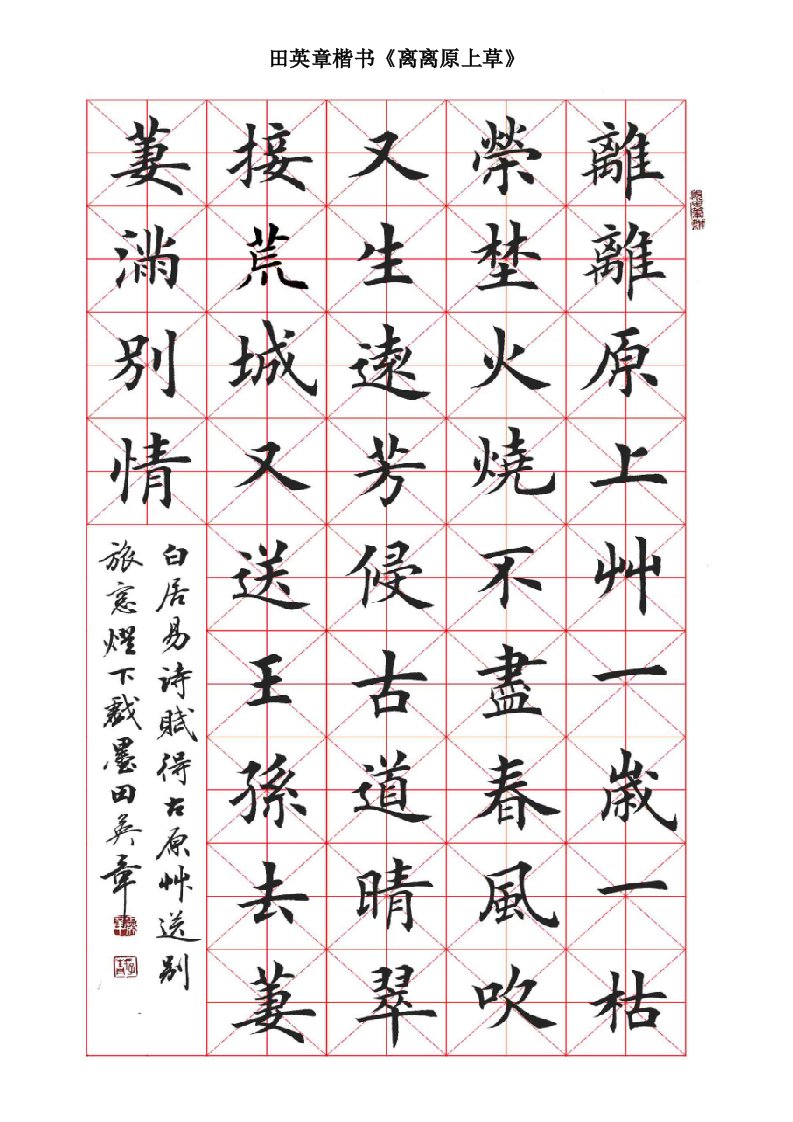 田英章楷书《离离原上草》
離離原上艸一歲一枯
榮埜火燒不盡春風吹
又生遠芳侵古道晴翠
接荒城又送王孫去萋
萋滿別情
白居易詩賦得古原艸送別
旅窓燈下戲墨田英章